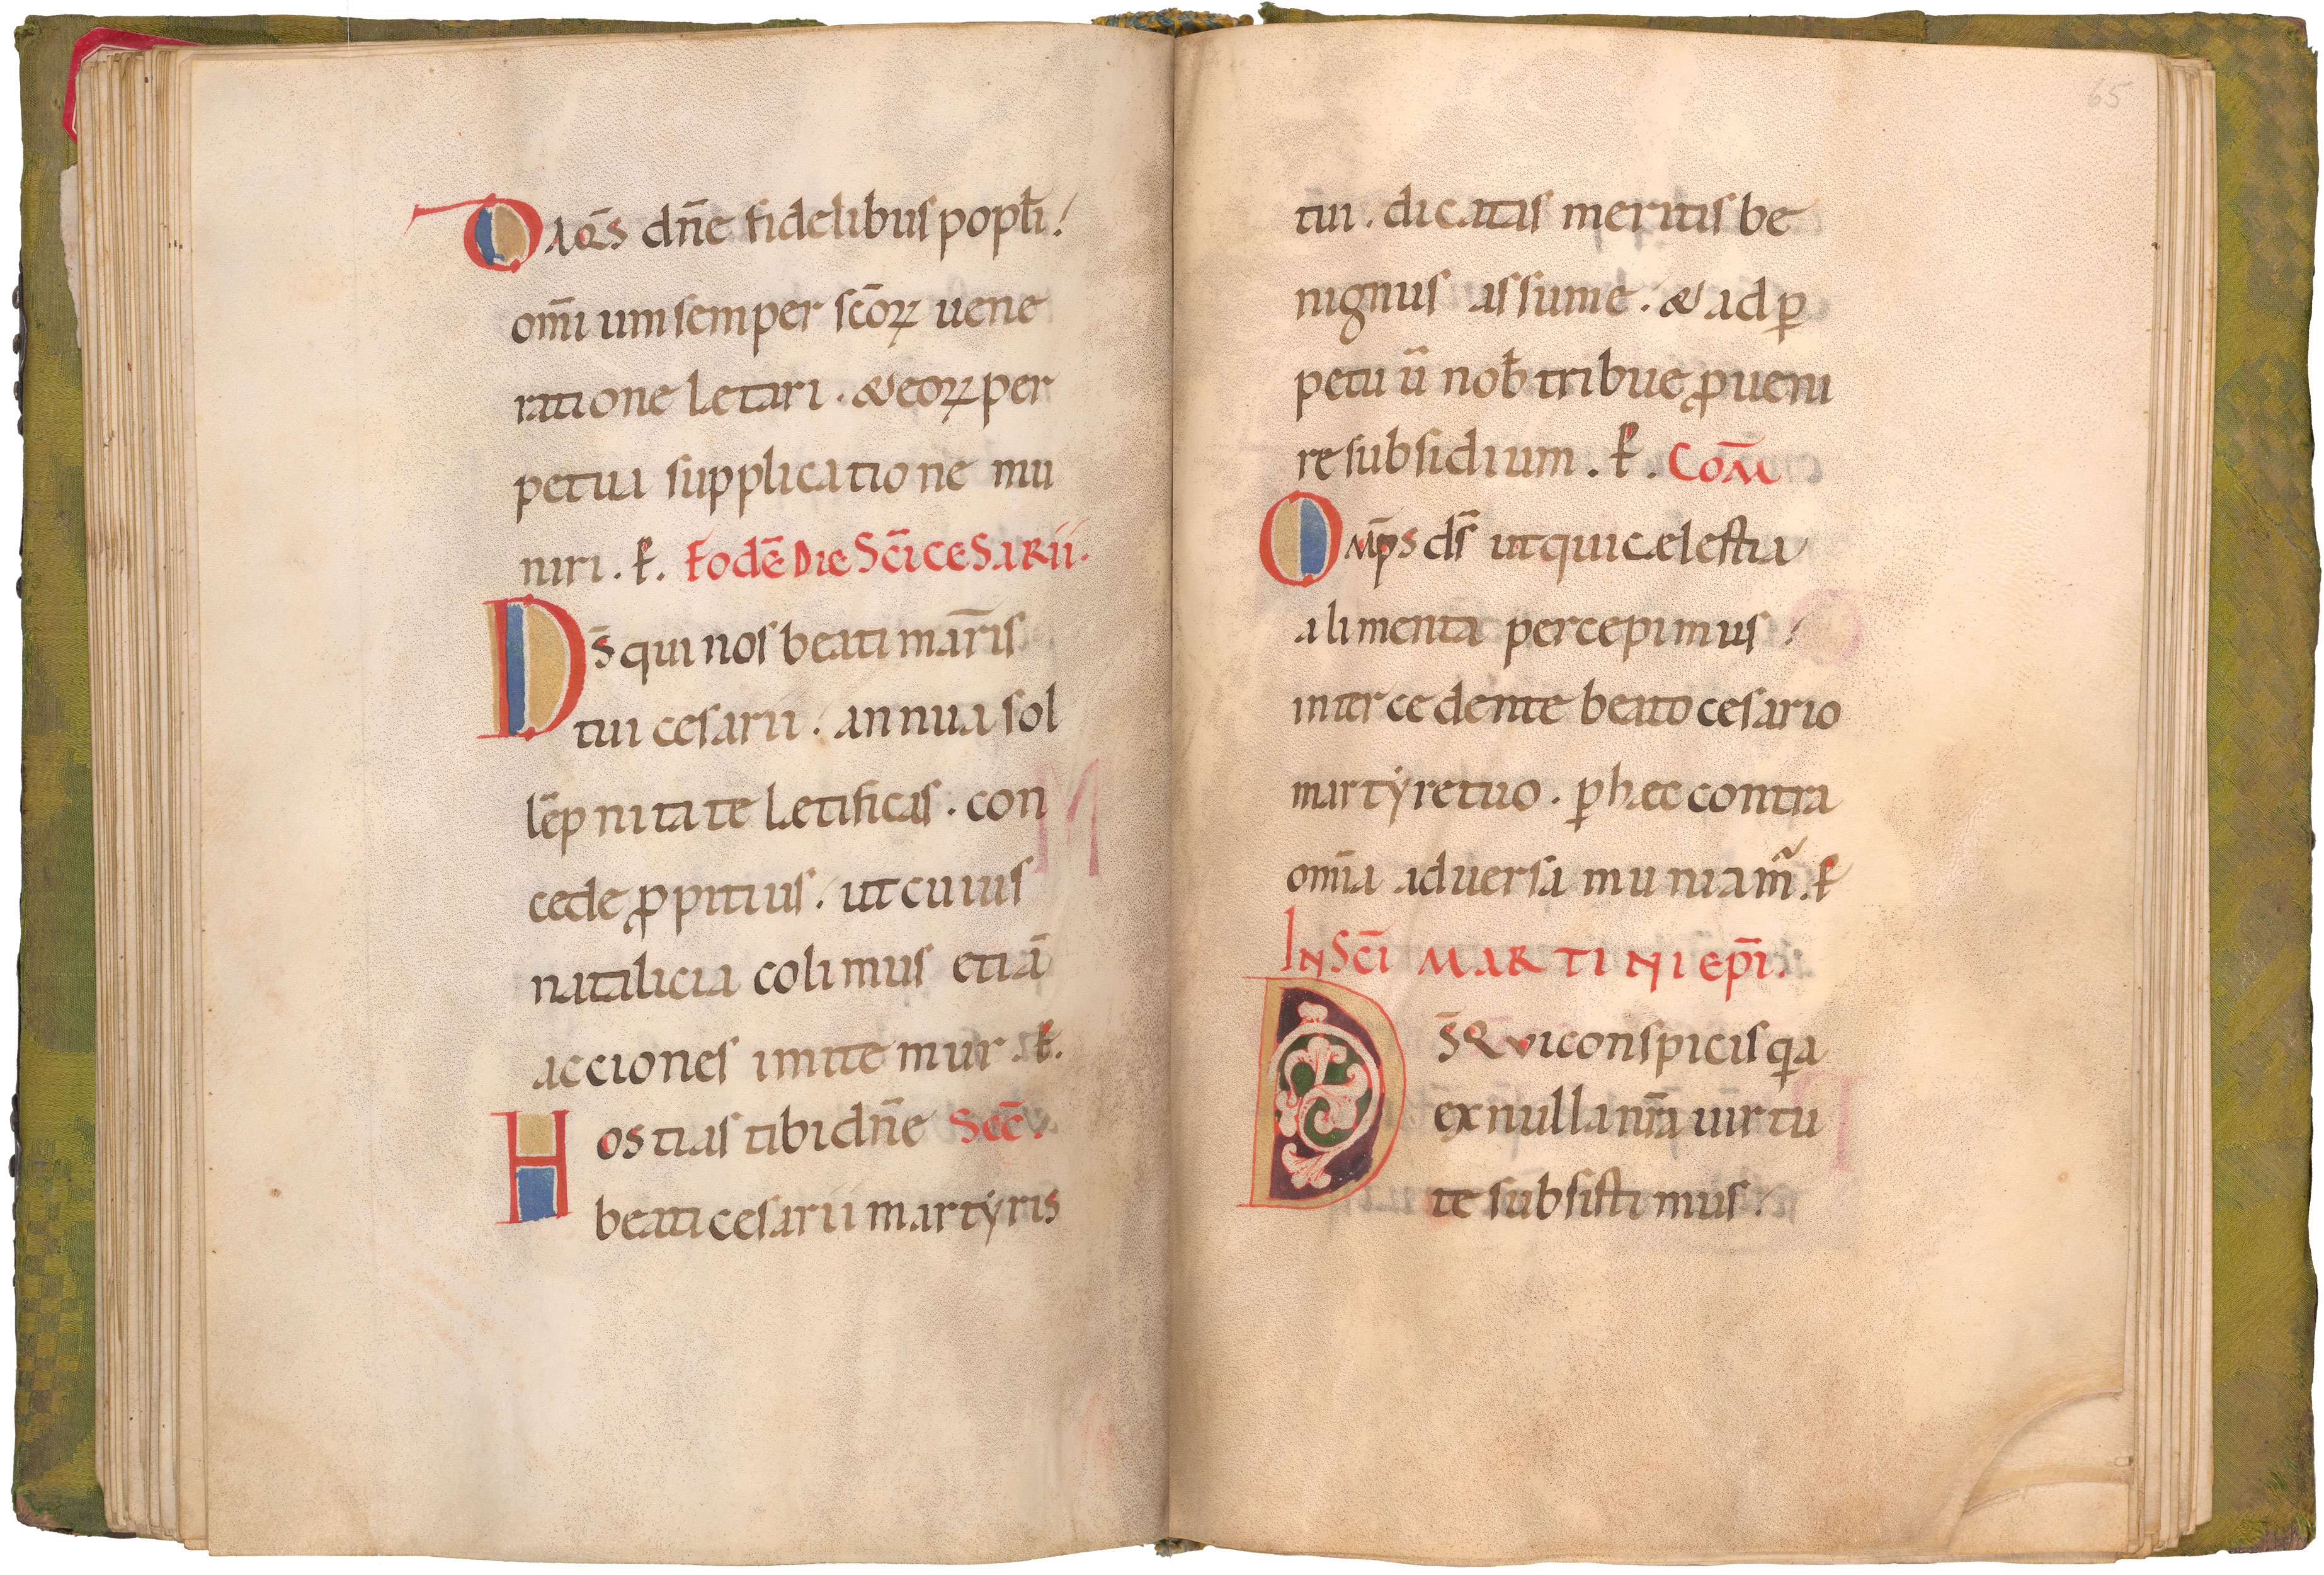 Da qs̄ dn̄e fidelibus popƚi.
om̄ium semper scōꝝ uene
ratione letari. & eoꝝ per
petua supplicatione mu
niri. ꝑ. Eodē die Sc̄i cesarii.
Ds̄ qui nos beati mar̄is
tui cesarii. annua sol
lēpnitate letificas. con
cede ꝓpitius. ut cuius
natalicia colimus etiā
acciones imitemur. ꝑ.
Hostias tibi dn̄e Sec̄.
beati cesarii martẏris
65
tui. dicatas meritis be
nignus assume. & ad ꝑ
petuū nob̄ tribue ꝓueni
re subsidium. ꝑ. Com̄
Omp̄s ds̄ ut qui celestia
alimenta percepimus.
intercedente beato cesario
martẏre tuo. ꝑ hęc contra
om̄ia aduersa muniam̄. ꝑ
In Sc̄i Martini ep̄i.
Ds̄ qui conspicis qa
ex nulla nr̄a uirtu
te subsistimus.